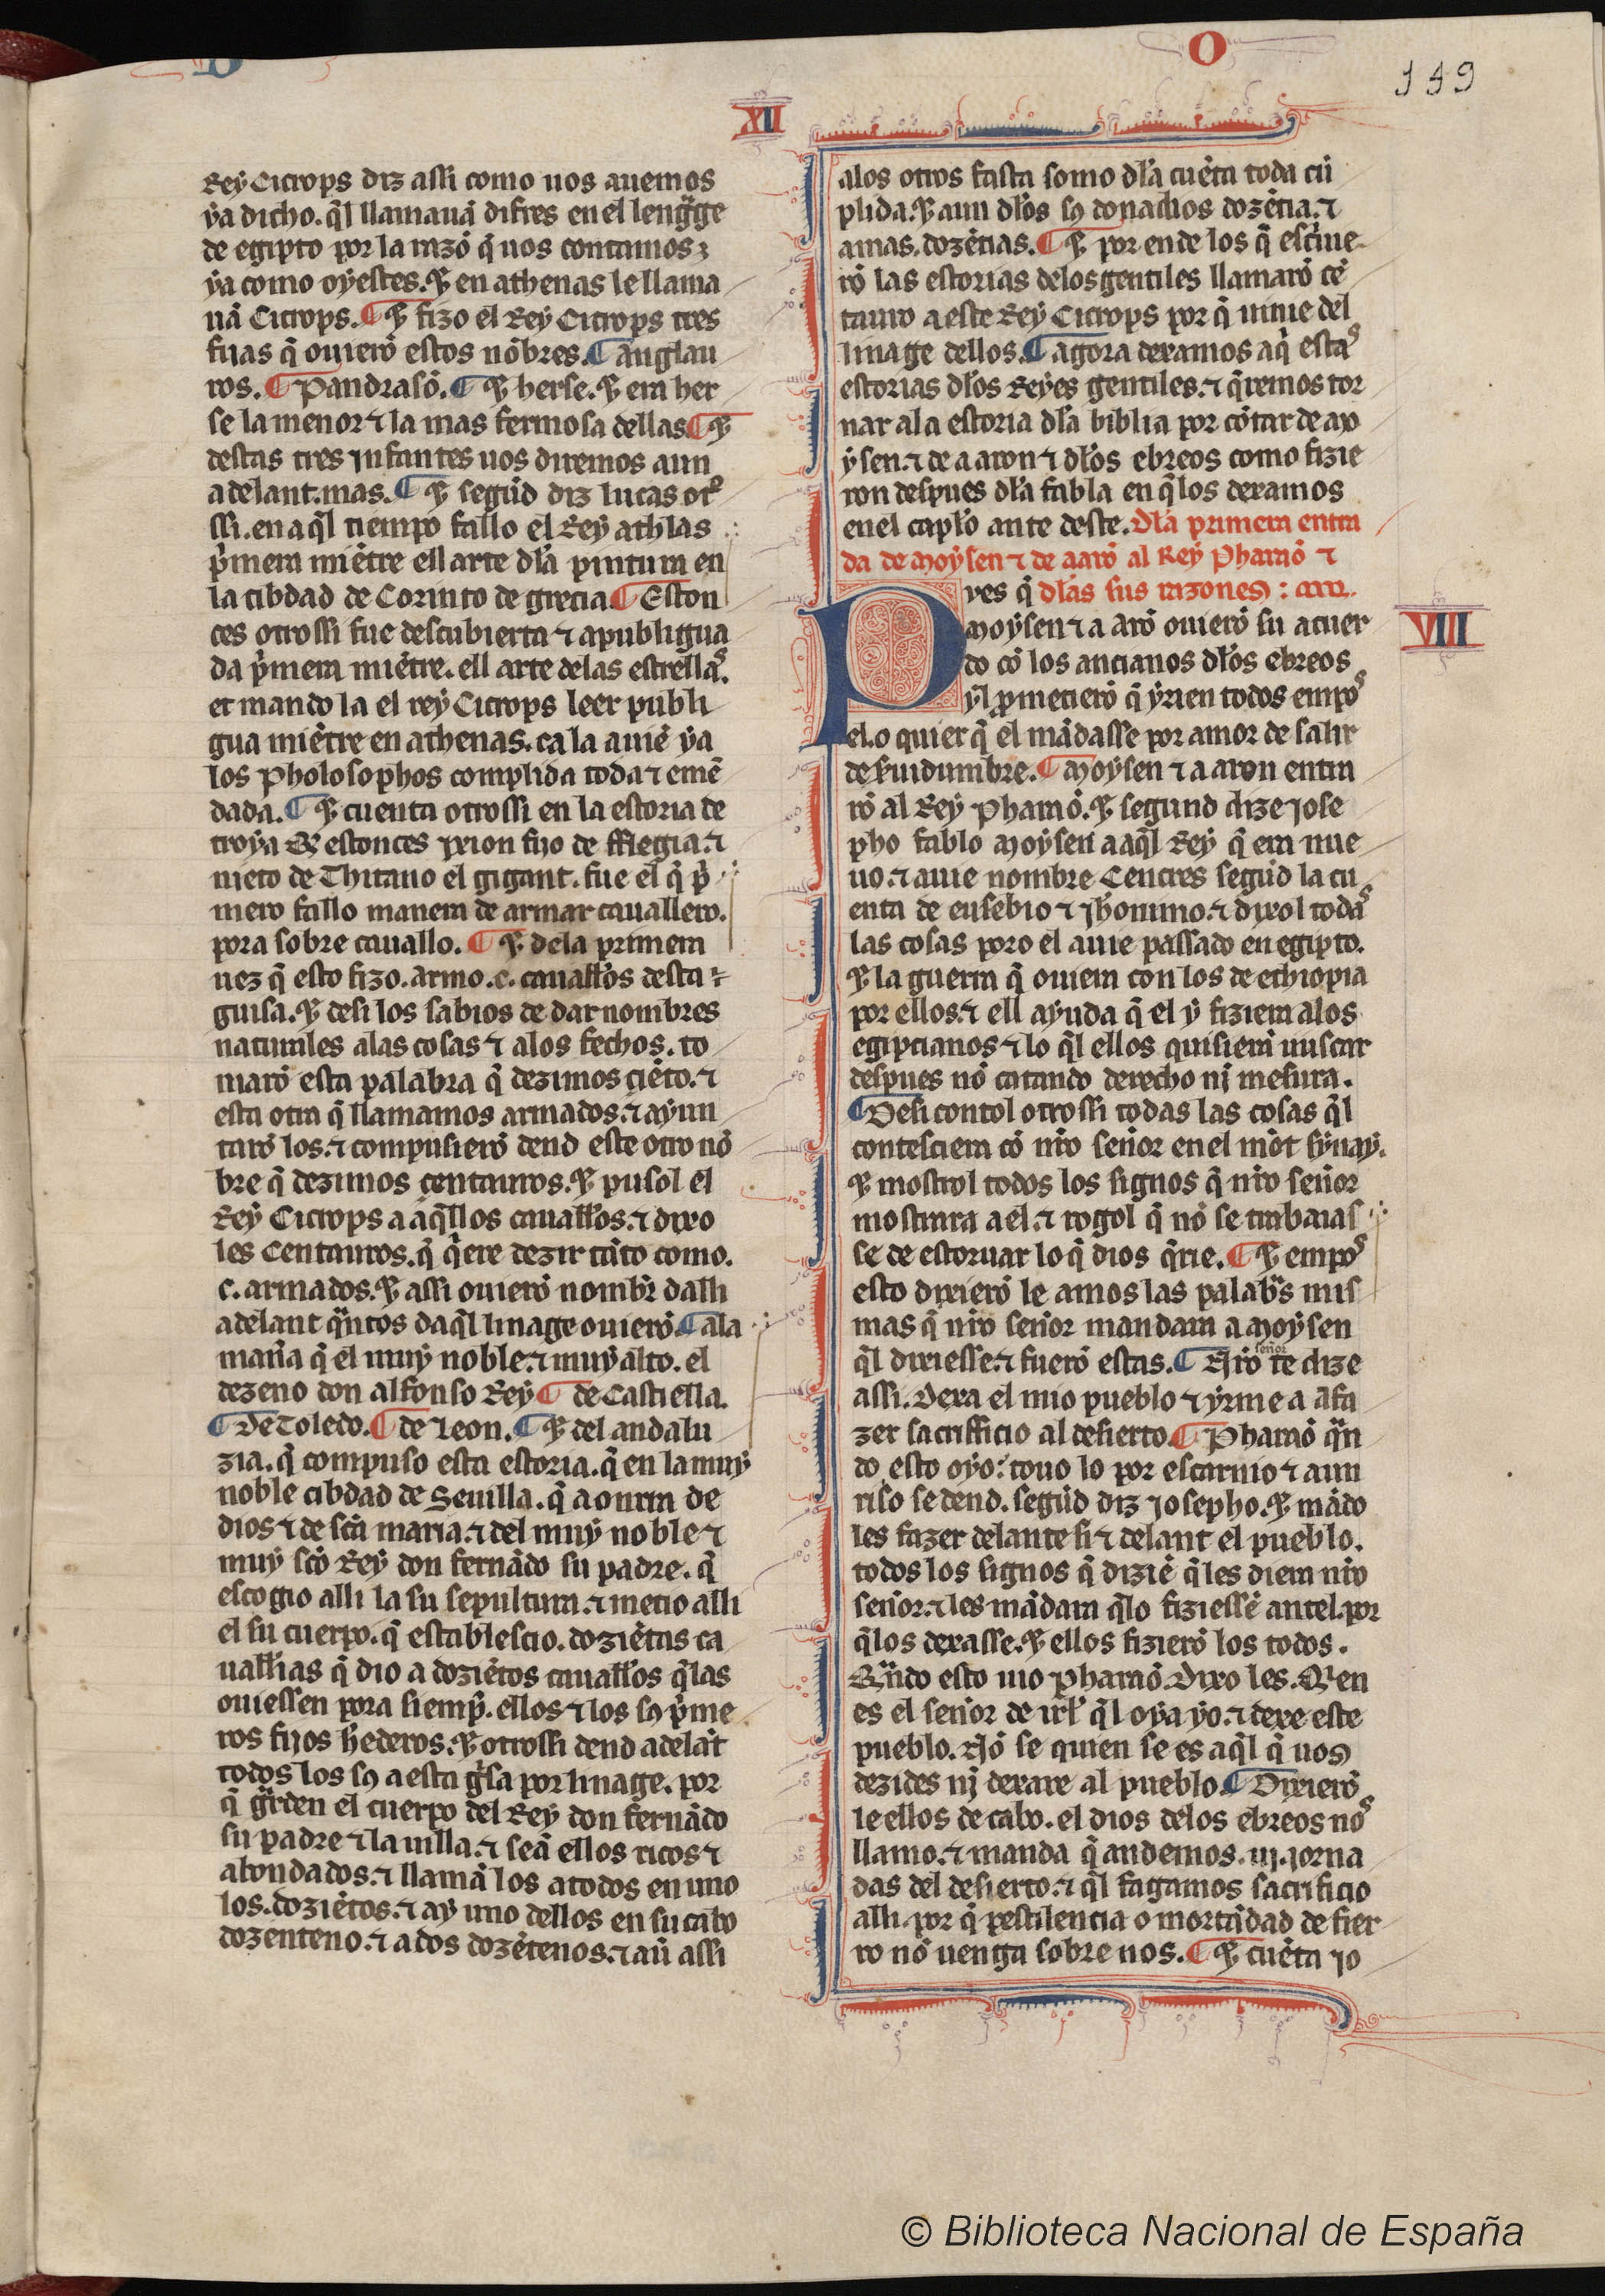 O
149
XII
Rey Cicrops diz assi como uos auemos
ya dicho. q̃l llamauã difres en el lengͣge
de egipto por la razõ q̃ uos contamos
ya como oyestes. ⁊ en athenas le llama
uã Cicrops. ¶ ⁊ fizo el Rey Cicrops tres
fijas q̃ ouierõ estos nõbres. ¶ anglau
ros. ¶ Pandrasõ. ¶ ⁊ herse. ⁊ era her
se la menor ⁊ la mas fermosa dellas ¶ ⁊
destas tres jnfantes uos diremos aun
adelant. mas. ¶ ⁊ segũd diz lucas otͦ
ssi. en aq̃l tiempo fallo el Rey athlas
p̃mera miẽtre ell arte dl̃a pintura en
la cibdad de Corinto de grecia ¶ Eston
ces otrossi fue descubierta ⁊ apubligua
da p̃mera miẽtre. ell arte delas estrellaˢ.
et mando la el rey Cicrops leer publi
gua miẽtre en athenas. ca la auiẽ ya
los Pholosophos complida toda ⁊ emẽ
dada. ¶ ⁊ cuenta otrossi en la estoria de
troya Q̃ estonces yxion fijo de fflegia. ⁊
nieto de Thitano el gigant. fue el q̃ p̃
mero fallo manera de armar cauallero.
pora sobre cauallo. ¶ ⁊ dela primera
uez q̃ esto fizo. armo .c. cauall̃os desta
guisa. ⁊ desi los sabios de dar nombres
naturales alas cosas ⁊ alos fechos. to
marõ esta palabra q̃ dezimos çiẽto. ⁊
esta otra q̃ llamamos armados. ⁊ ayun
tarõ los. ⁊ compusierõ dend este otro nõ
bre q̃ dezimos çentauros. ⁊ pusol el
Rey Cicrops a aq̃llos cauall̃os. ⁊ dixo
les Centauros. q̃ q̃ere dezir tãto como.
c. armados. ⁊ assi ouierõ nombr̃ dalli
adelant qͣntos daq̃l linage ouierõ. ¶ ala
maña q̃ el muy noble. ⁊ muy alto. el
dezeno don alfonso Rey ¶ de Castiella.
¶ De Toledo. ¶ de Leon. ¶ ⁊ del andalu
zia. q̃ compuso esta estoria. q̃ en la muy
noble cibdad de Seuilla. q̃ a onrra de
dios ⁊ de sc̃a maria. ⁊ del muy noble ⁊
muy sc̃o Rey don fernãdo su padre. q̃
escogio alli la su sepultura. ⁊ metio alli
el su cuerpo. q̃ establescio. doziẽtas ca
uall̃ias q̃ dio a doziẽtos cauall̃os q̃las
ouiessen pora siemp̃. ellos ⁊ los sꝯ p̃me
ros fijos h̃ederos. ⁊ otrossi dend adelãt
todos los sꝯ a esta gͥsa por linage. por
q̃ gͣrden el cuerpo del Rey don fernãdo
su padre ⁊ la uilla. ⁊ seã ellos ricos ⁊
abondados. ⁊ llamã los atodos en uno
los. doziẽtos. ⁊ ay uno dellos en su cabo
dozenteno. ⁊ a dos dozẽtenos. ⁊ aũ assi
alos otros fasta somo dl̃a cuẽta toda cũ
plida. ⁊ aun dl̃os sꝯ donados dozẽtia. ⁊
amas. dozẽtias. ¶ ⁊ por ende los q̃ escͥuie
rõ las estorias delos gentiles llamarõ cẽ
tauro a este Rey Cicrops por q̃ uinie del
linage dellos. ¶ agora dexamos aq̃ estaˢ
estorias dl̃os Reyes gentiles. ⁊ q̃remos tor
nar ala estoria dl̃a biblia por cõtar de mo
ysen. ⁊ de aaron ⁊ dl̃os ebreos como fizie
ron despues dl̃a fabla en q̃ los dexamos
en el capl̃o ante deste. Dl̃a primera entra
da de moysen ⁊ de aarõ al Rey Pharaõ ⁊
dl̃as sus razones :
VIII
Pues q̃
moysen ⁊ a arõ ouierõ su acuer
do cõ los ancianos dl̃os ebreos
yl p̃metierõ q̃ yrien todos empoˢ
el. o quier q̃ el mãdasse por amor de salir
de s̃uidumbre. ¶ moysen ⁊ a aron entra
rõ al Rey Pharaõ. ⁊ segund dize jose
pho fablo moysen a aq̃l Rey q̃ era nue
uo. ⁊ auie nombre Cencres segũd la cu
enta de eusebio ⁊ jh̃onimo. ⁊ dixol todaˢ
las cosas poro el auie passado en egipto.
⁊ la guerra q̃ ouiera con los de ethiopia
por ellos. ⁊ ell ayuda q̃ el y fiziera alos
egipcianos ⁊ lo q̃l ellos quisierã uuscar
despues nõ catando derecho nj mesura.
¶ Desi contol otrossi todas las cosas q̃l
contesciera cõ nr̃o señor en el mõt synay.
⁊ mostrol todos los signos q̃ nr̃o señor
mostrara a el. ⁊ rogol q̃ nõ se trabaias
se de estoruar lo q̃ dios q̃rie. ¶ ⁊ empoˢ
esto dixierõ le amos las palabͣs mis
mas q̃ nr̃o señor mandara a moysen
q̃l dixiesse. ⁊ fuerõ estas. ¶ Nr̃o señor te dize
assi. Dexa el mio pueblo ⁊ yrme a afa
zer sacrifficio al desierto. ¶ Pharaõ qͣn
do esto oyo. touo lo por escarnio ⁊ aun
riso se dend. segũd diz josepho. ⁊ mãdo
les fazer delante si ⁊ delant el pueblo.
todos los signos q̃ diziẽ q̃ les diera nr̃o
señor. ⁊ les mãdara q̃lo fiziessẽ antel. por
q̃los dexasse. ⁊ ellos fizierõ los todos.
Qͣndo esto uio Pharaõ. Dixo les. Q̃en
es el señor de irl̃ q̃l oya yo. ⁊ dexe este
pueblo. Nõ se quien se es aq̃l q̃ uos
dezides nj dexare al pueblo. ¶ Dixierõ
le ellos de cabo. el dios delos ebreos noˢ
llamo. ⁊ manda q̃ andemos. iij. jorna
das del desierto. ⁊ q̃l fagamos sacrificio
alli. por q̃ pestilencia o mortãdad de fier
ro nõ uenga sobre nos. ¶ ⁊ cuẽta jo
© Biblioteca Nacional de España